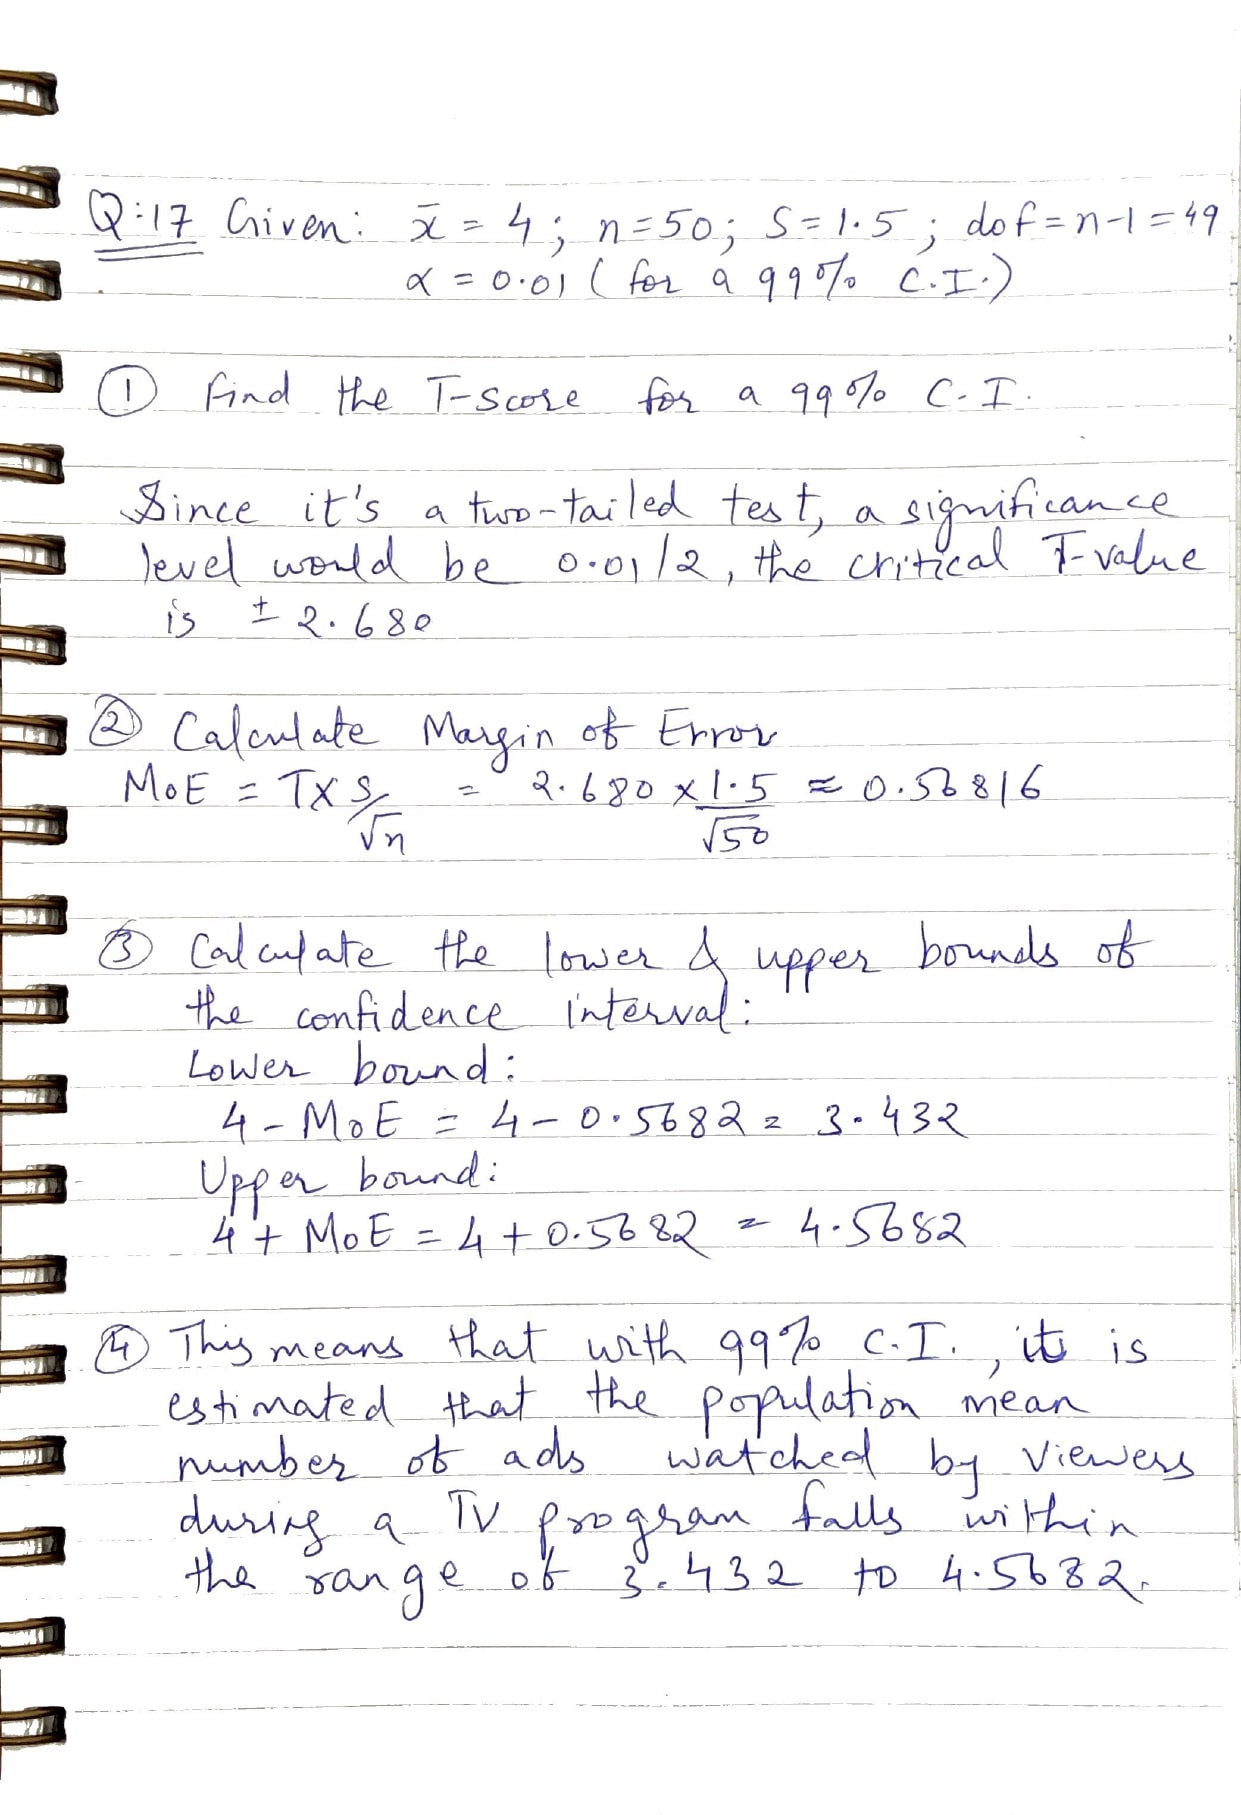 Q:17 Given: x̄ = 4; n=50; S=1.5; dof=n-1=49
α = 0.01 (for a 99% C.I.)
① Find the T-score for a 99% C.I.
Since it's a two-tailed test, a significance
level would be 0.01/2, the critical T-value
is ± 2.680
② Calculate Margin of Error
MoE = T×S/√n = 2.680 × 1.5/√50 ≈ 0.56816
③ Calculate the lower & upper bounds of
the confidence interval:
Lower bound:
4 - MoE = 4 - 0.5682 = 3.432
Upper bound:
4 + MoE = 4 + 0.5682 = 4.5682
④ This means that with 99% C.I., it is
estimated that the population mean
number of ads watched by viewers
during a TV program falls within
the range of 3.432 to 4.5682.